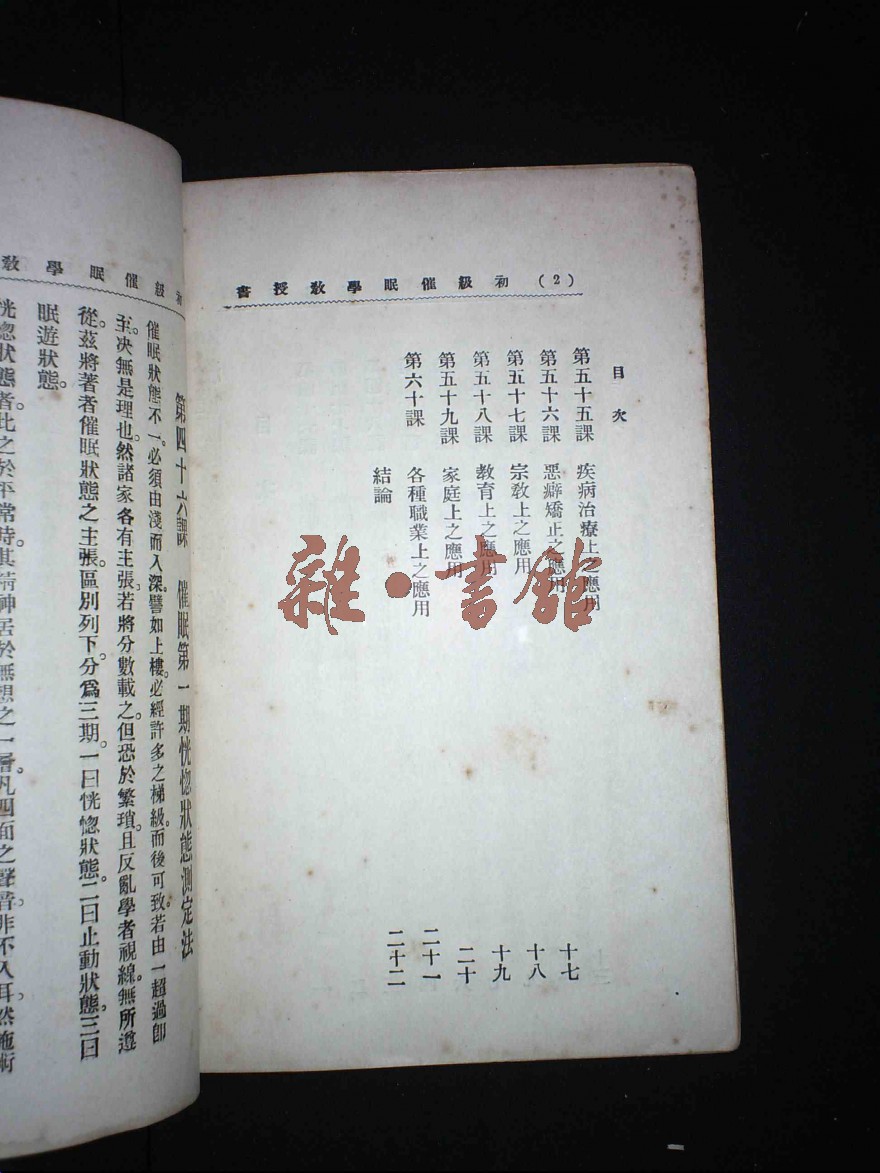 (2) 初級催眠學教授書
目次
第五十五課 疾病治療上之應用 十七
第五十六課 惡癖矯正之應用 十八
第五十七課 宗教上之應用 十九
第五十八課 教育上之應用 二十
第五十九課 家庭上之應用 二十一
第六十課 各種職業上之應用 二十二
結論
雜·書館
初級催眠學教
第四十六課 催眠第一期恍惚狀態測定法
催眠狀態不一。必須由淺而入深。譬如上樓。必經許多之梯級。而後可致。若由一超過卽
至。决無是理也。然諸家各有主張。若將分數載之。但恐於繁瑣。且反亂學者視線。無所遵
從。茲將著者催眠狀態之主張。區別列下。分爲三期。一曰恍惚狀態。二曰止動狀態。三曰
眠遊狀態。
恍惚狀態者。此之於平常時。其精神居於無想之一層。凡四面之聲音。非不入耳。然施術